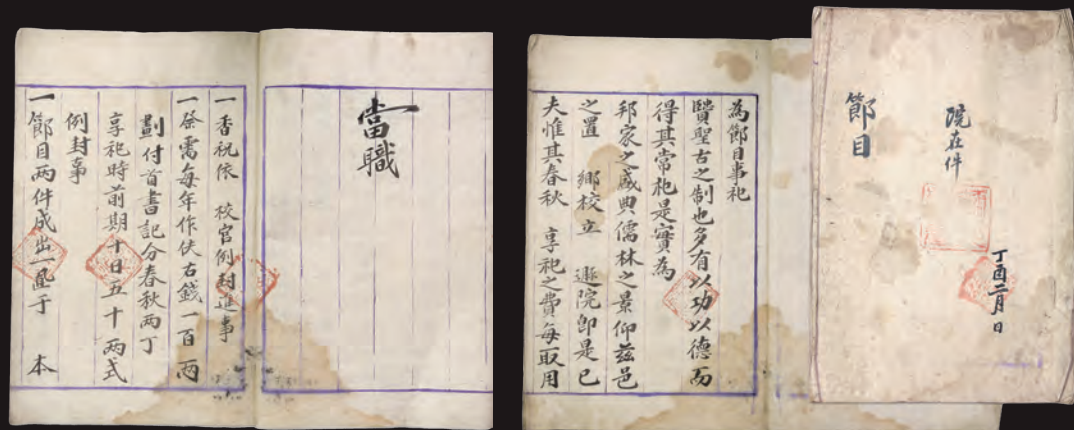 丁酉二月 日
院在件
節目
為節目事祀
賢聖古之制也多有以功以德而
得其常祀是實為
邦家之盛典儒林之景仰茲邑
之置 鄉校立 遯院卽是已
夫惟其春秋 享祀之費每取用
當職
一香祝依 校官例封進事
一祭需每年作伏右錢一百兩
劃付首書記分春秋兩丁
享祀時前期十日五十兩式
例封事
一節目兩件成出一置于 本